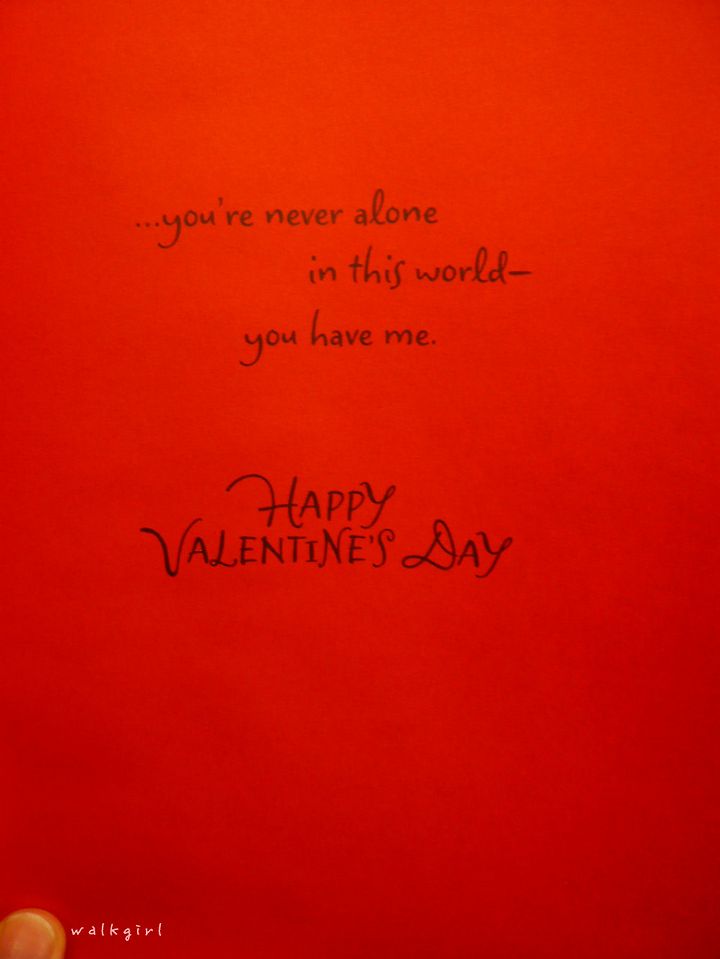 ...you're never alone
in this world—
you have me.
HAPPY
VALENTINE'S DAY
walkgirl